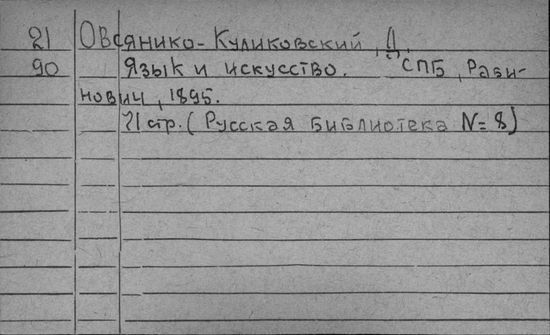 21 Овсянико-Куликовский, Д.
90 Язык и искусство. СПБ, Раби-
нович, 1895.
71 стр. (Русская библиотека № 8)